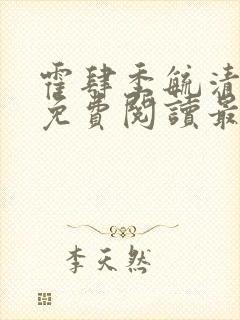 霍肆季毓清
免費閱讀最
李天然